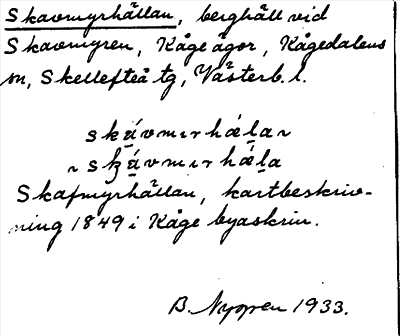 Skavmyrhällan, berghäll vid
Skavmyren, Kåge ägor, Kågedalens
sn, Skellefteå tg, Västerb. l.
Skafmyrhällan, kartbeskriv-
ning 1849 i Kåge byaskrin.
B. Nygren 1933.